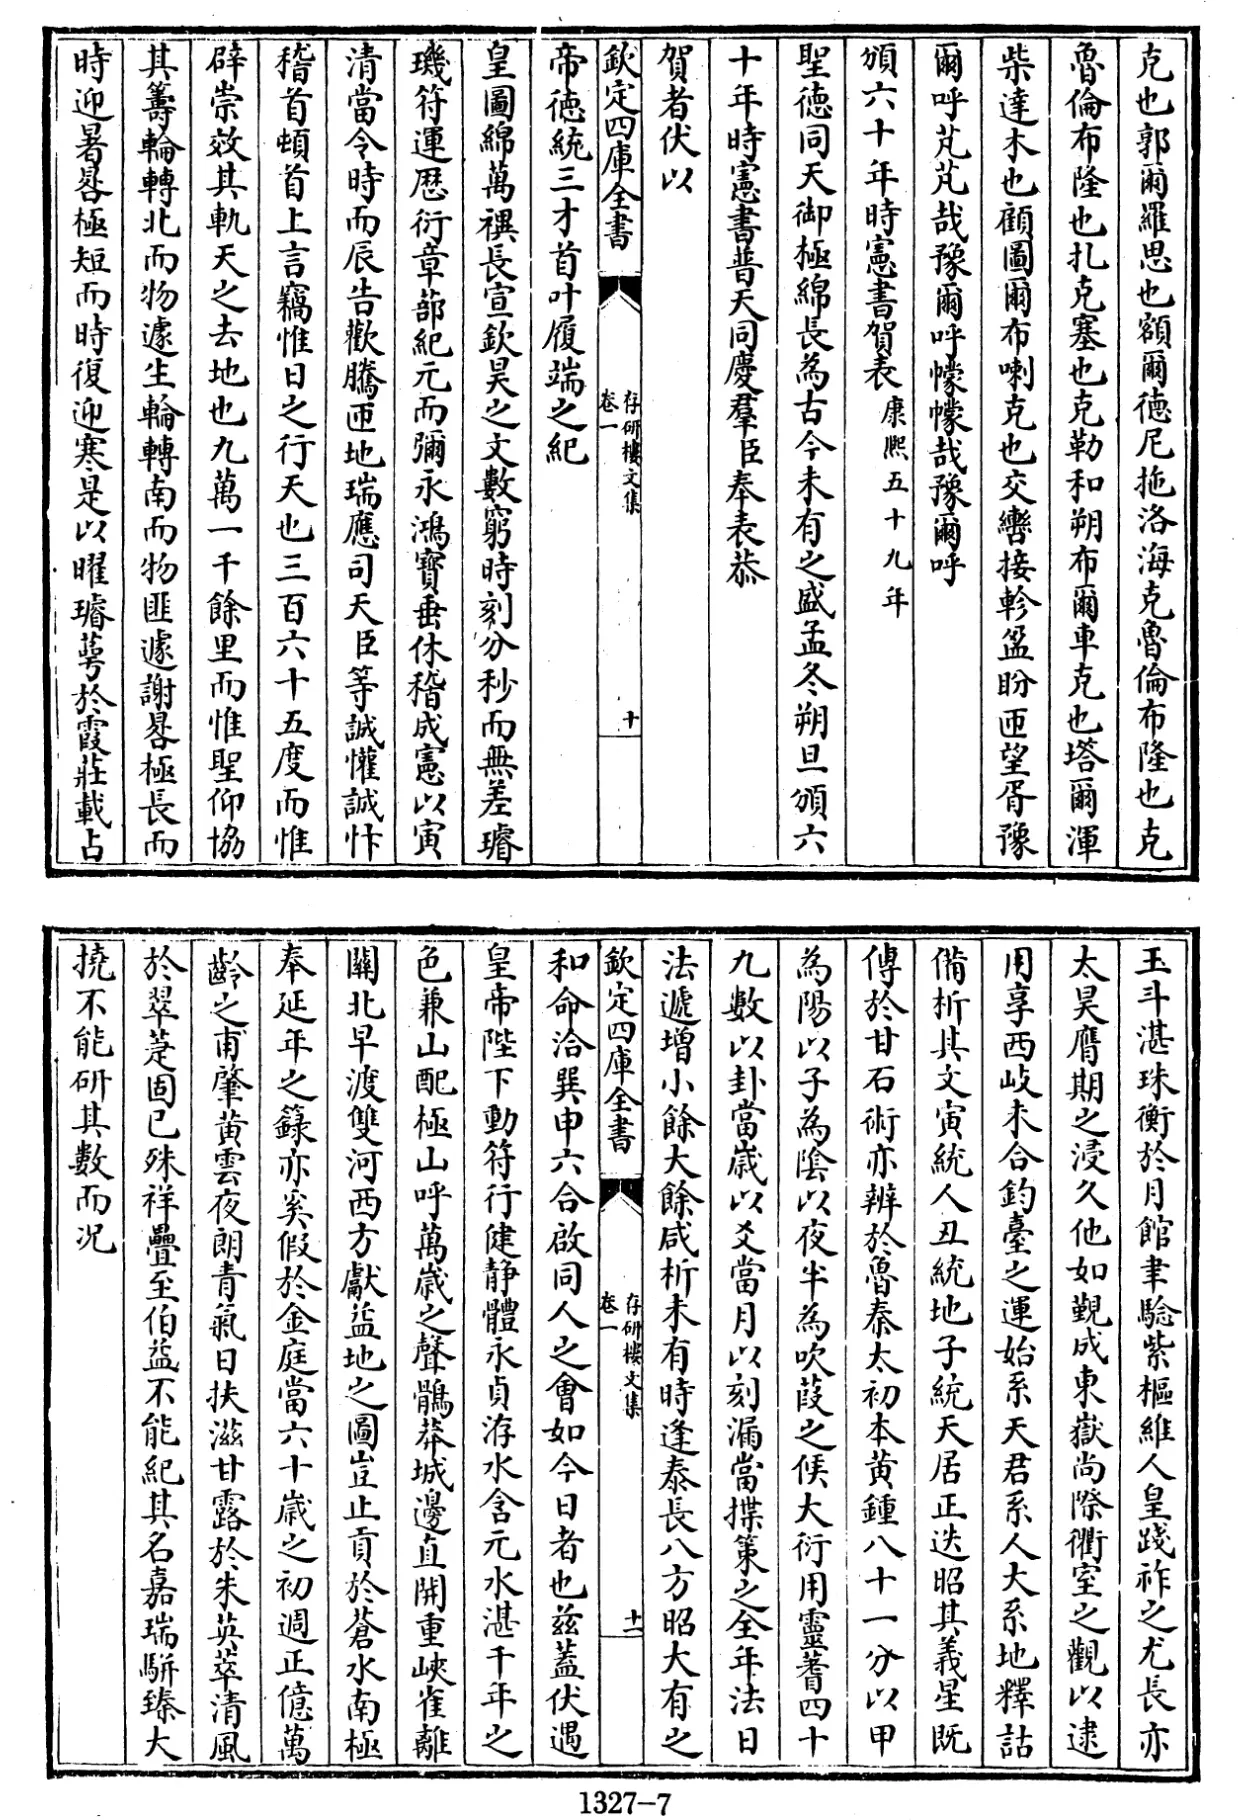 克也郭爾羅思也額爾德尼拖洛海克魯倫布隆也克
魯倫布隆也扎克塞也克勒和朔布爾車克也塔爾渾
柴達木也顧圖爾布喇克也交轡接軫盈盼匝望胥豫
爾呼芃芃哉豫爾呼幪幪哉豫爾呼
頒六十年時憲書賀表康熙五十九年
聖德同天御極綿長為古今未有之盛孟冬朔旦頒六
十年時憲書普天同慶羣臣奉表恭
賀者伏以
欽定四庫全書
存研樓文集
卷一
十
帝德統三才首叶履端之紀
皇圖綿萬禩長宣欽昊之文數窮時刻分秒而無差璿
璣符運厯衍章蔀紀元而彌永鴻寶垂休稽成憲以寅
清當令時而辰告歡騰匝地瑞應司天臣等誠懽誠忭
稽首頓首上言竊惟日之行天也三百六十五度而惟
辟崇效其軌天之去地也九萬一千餘里而惟聖仰協
其籌輪轉北而物遽生輪轉南而物匪遽謝晷極長而
時迎暑晷極短而時復迎寒是以曜璿萼於霞莊載占
玉斗湛珠衡於月館聿驗紫樞維人皇踐祚之尤長亦
太昊膺期之浸久他如覲成東嶽尚際衢室之觀以逮
用享西岐未合鈞臺之運始系天君系人大系地釋詁
備析其文寅統人丑統地子統天居正迭昭其義星既
傳於甘石術亦辨於魯秦太初本黃鍾八十一分以甲
為陽以子為陰以夜半為吹葭之候大衍用靈蓍四十
九數以卦當歲以爻當月以刻漏當揲策之全年法日
法遞增小餘大餘咸析未有時逢泰長八方昭大有之
欽定四庫全書
存研樓文集
卷一
十一
和命洽巽申六合啟同人之會如今日者也茲蓋伏遇
皇帝陛下動符行健静體永貞洊水含元水湛千年之
色兼山配極山呼萬歲之聲鶻莽城邊直開重峽雀離
關北早渡雙河西方獻益地之圖豈止貢於蒼水南極
奉延年之籙亦奚假於金庭當六十歲之初週正億萬
齡之甫肇黃雲夜朗青氣日扶滋甘露於朱英萃清風
於翠萐固已殊祥疊至伯益不能紀其名嘉瑞駢臻大
撓不能研其數而況
1327-7